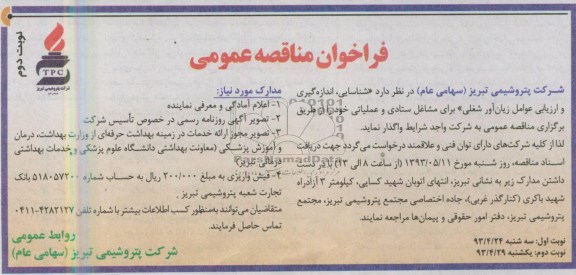 نوبت دوم
TPC
شرکت پتروشیمی تبریز
فراخوان مناقصه عمومی
شرکت پتروشیمی تبریز (سهامی عام) در نظر دارد «شناسایی، اندازه‌گیری
و ارزیابی عوامل زیان‌آور شغلی» برای مشاغل ستادی و عملیاتی خود را از طریق
برگزاری مناقصه عمومی به شرکت واجد شرایط واگذار نماید.
لذا از کلیه شرکت‌های دارای توان فنی و علاقمند درخواست می‌گردد جهت دریافت
اسناد مناقصه، روز شنبه مورخ ۱۳۹۳/۰۵/۱۱ (از ساعت ۸ الی ۱۳) با در دست
داشتن مدارک زیر به نشانی تبریز، انتهای اتوبان شهید کسایی، کیلومتر ۳ آزادراه
شهید باکری (کنارگذر غربی)، جاده اختصاصی مجتمع پتروشیمی تبریز، مجتمع
پتروشیمی تبریز، دفتر امور حقوقی و پیمان‌ها مراجعه نمایند.
نوبت اول: سه شنبه ۹۳/۴/۲۴
نوبت دوم: یکشنبه ۹۳/۴/۲۹
مدارک مورد نیاز:
۱- اعلام آمادگی و معرفی نماینده
۲- تصویر آگهی روزنامه رسمی در خصوص تأسیس شرکت
۳- تصویر مجوز ارائه خدمات در زمینه بهداشت حرفه‌ای از وزارت بهداشت، درمان
و آموزش پزشکی (معاونت بهداشتی دانشگاه علوم پزشکی و خدمات بهداشتی
درمانی تبریز)
۴- فیش واریزی به مبلغ ۲۰۰/۰۰۰ ریال به حساب شماره ۵۱۸۰۵۷۲۰۰ بانک
تجارت شعبه پتروشیمی تبریز
متقاضیان می‌توانند به‌منظور کسب اطلاعات بیشتر با شماره تلفن ۴۲۸۲۱۲۷-۰۴۱۱
تماس حاصل فرمایند.
روابط عمومی
شرکت پتروشیمی تبریز (سهامی عام)